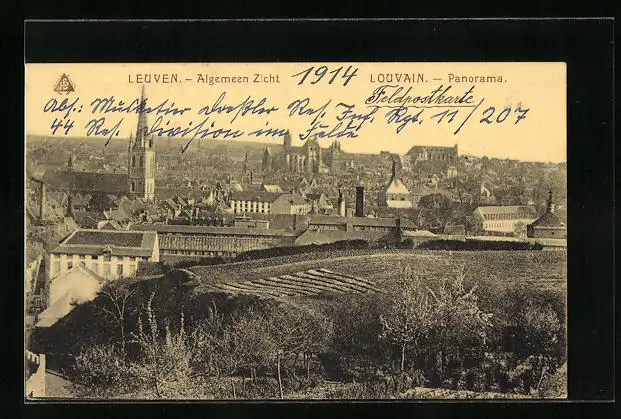 LEUVEN. – Algemeen Zicht 1914 LOUVAIN. – Panorama.
Abs.: Musketier Dreßler Res. Inf. Rgt. 11/207 Feldpostkarte
44 Res. Division im Felde